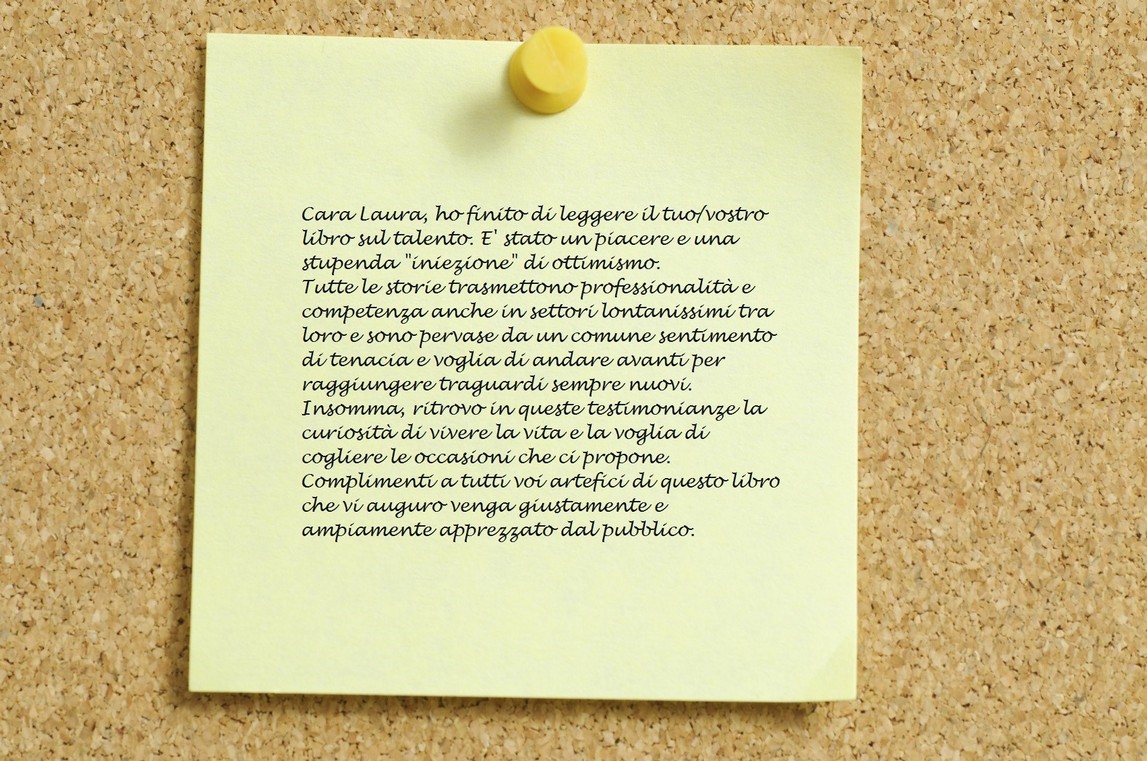 Cara Laura, ho finito di leggere il tuo/vostro
libro sul talento. E' stato un piacere e una
stupenda "iniezione" di ottimismo.
Tutte le storie trasmettono professionalità e
competenza anche in settori lontanissimi tra
loro e sono pervase da un comune sentimento
di tenacia e voglia di andare avanti per
raggiungere traguardi sempre nuovi.
Insomma, ritrovo in queste testimonianze la
curiosità di vivere la vita e la voglia di
cogliere le occasioni che ci propone.
Complimenti a tutti voi artefici di questo libro
che vi auguro venga giustamente e
ampiamente apprezzato dal pubblico.